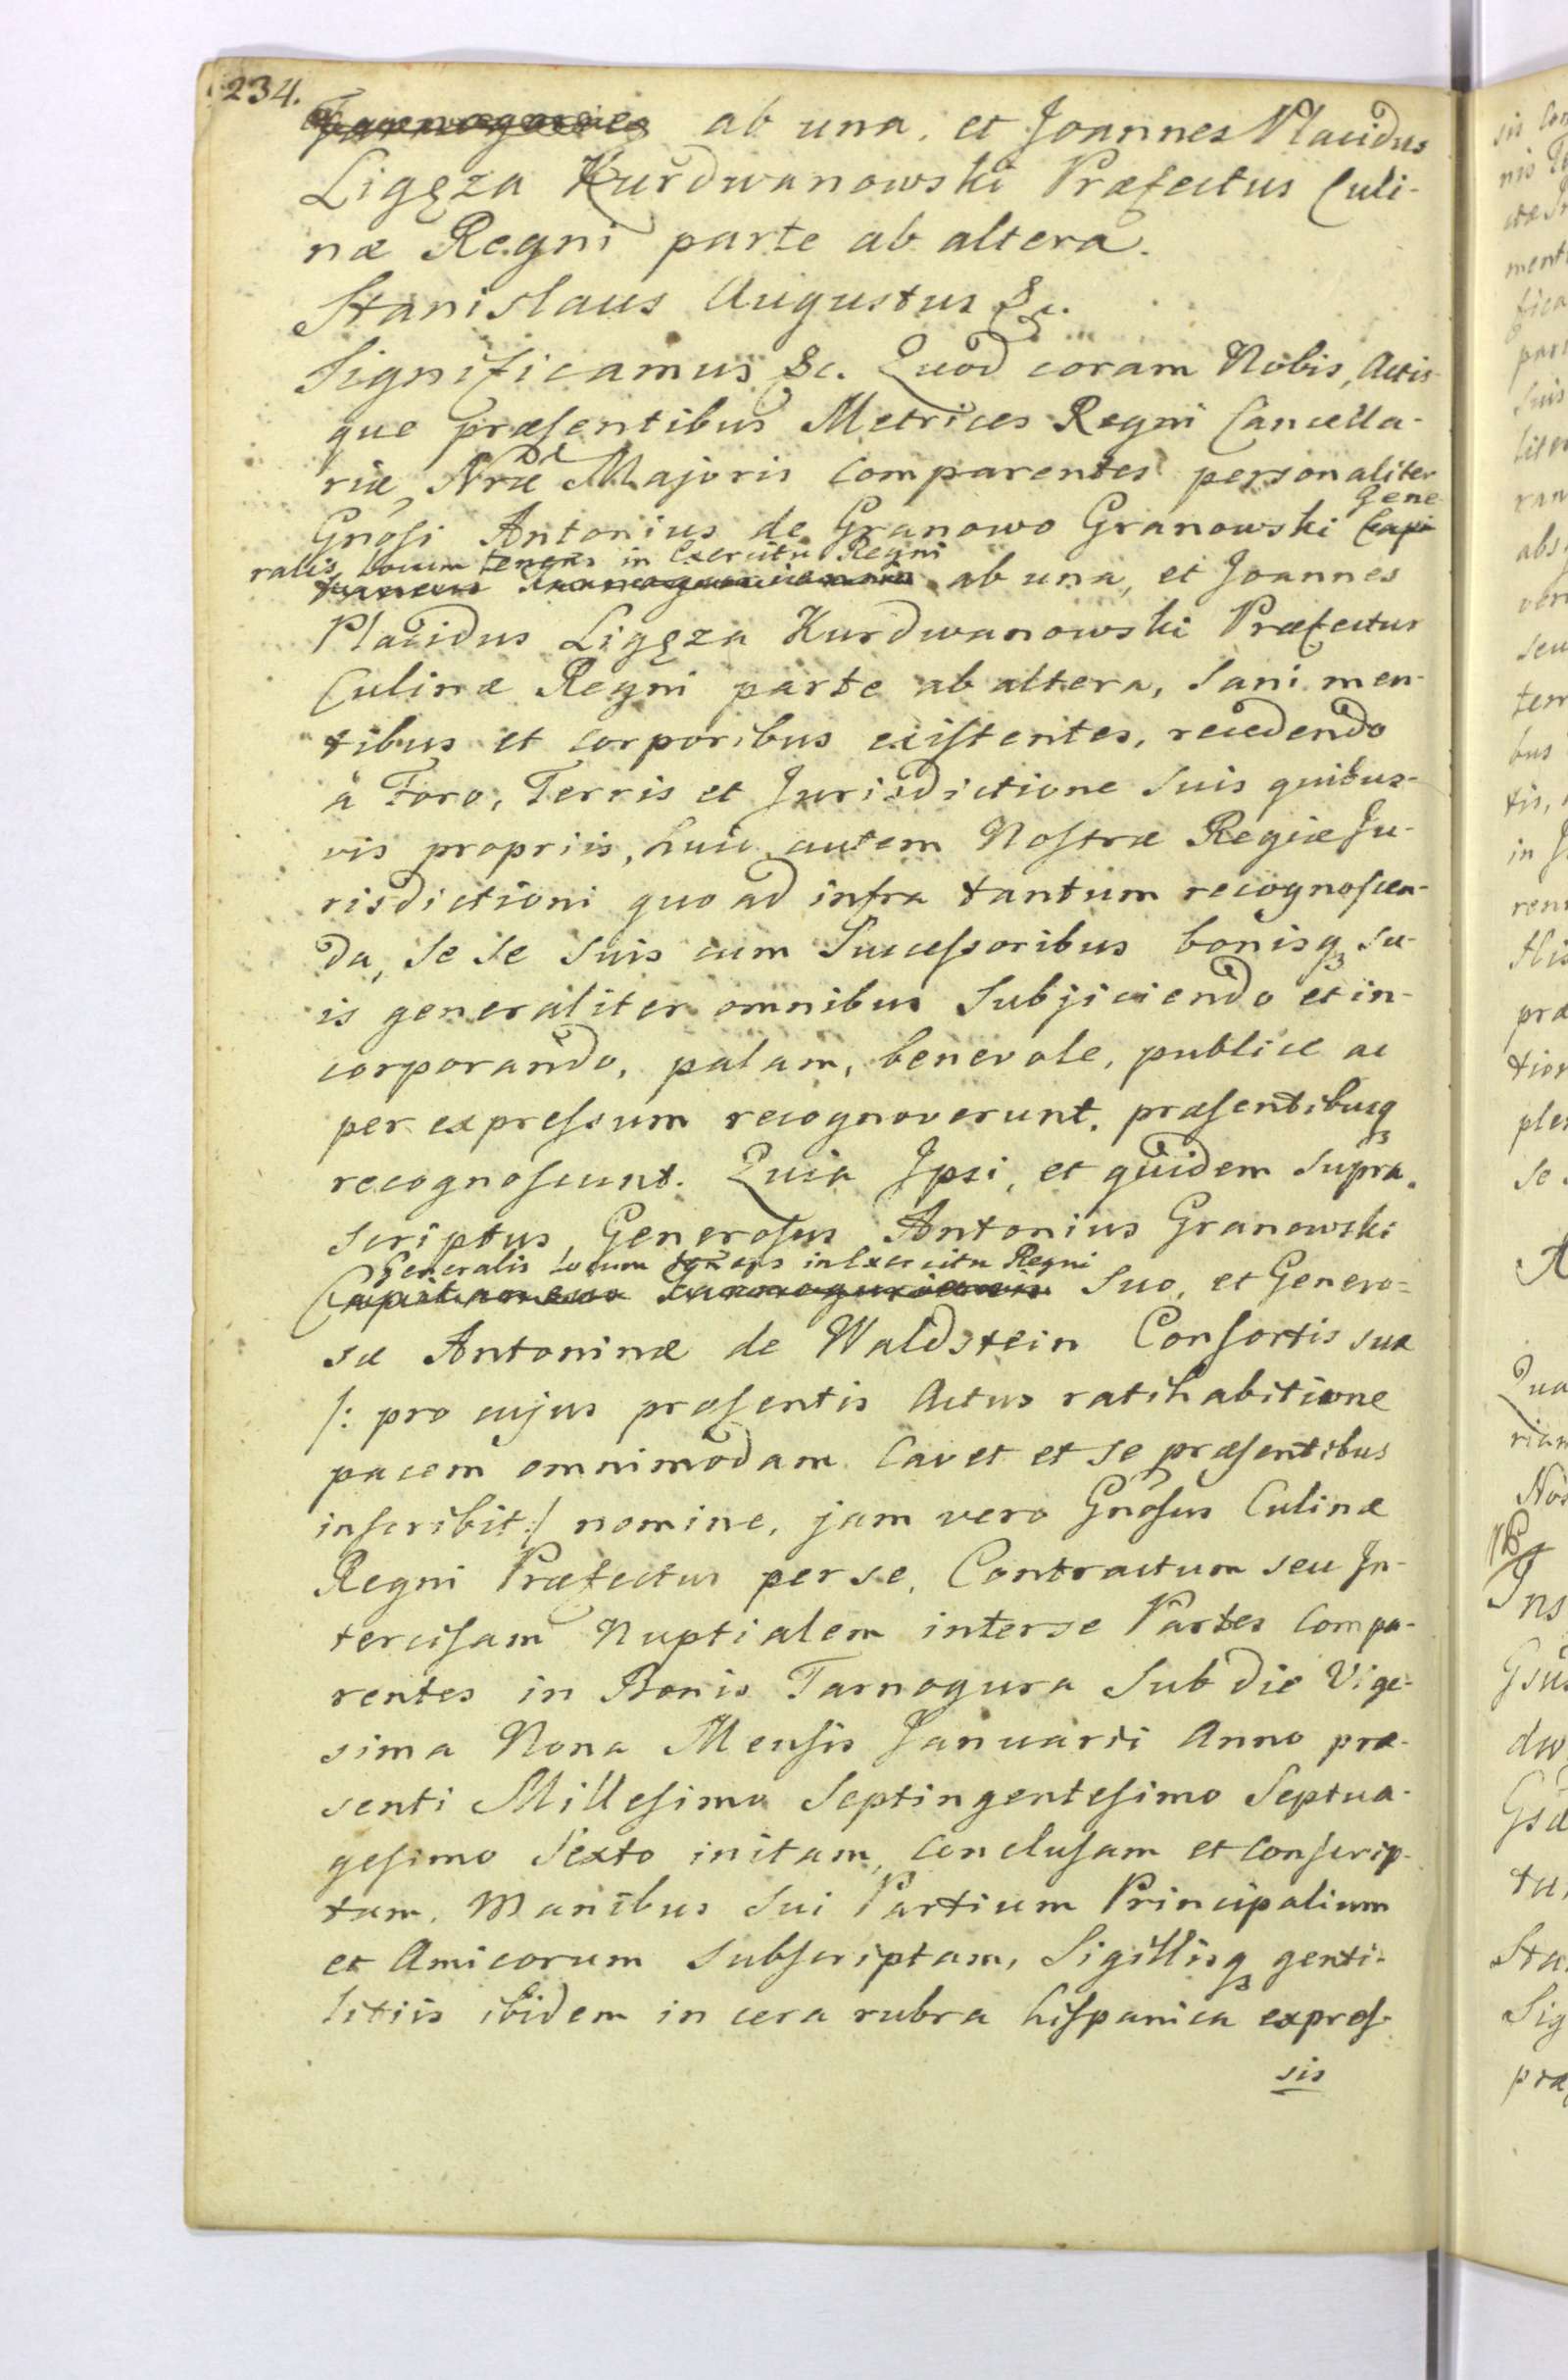 234.
ab una, et Joannes Placidus
Ligęza Kurdwanowski Præfectus Culi-
næ Regni parte ab altera.
Stanislaus Augustus &c.
Significamus &c. Quod coram Nobis, Actis
que præsentibus Metrices Regni Cancella-
riæ Nræ Majoris comparentes personaliter
Gene
Gnosi Antonius de Granowo Granowski Capi
ralis locum tenens in Exercitu Regni
taneus Tarnogoriensis ab una, et Joannes
Placidus Ligęza Kurdwanowski Præfectus
Culinæ Regni parte ab altera, Sani men-
tibus et corporibus existentes, recedendo
à Foro, Terris et Jurisdictione Suis quibus-
vis propriis, huic autem Nostræ Regiæ Ju-
risdictioni quo ad infra tantum recognoscen-
da, Se Se Suis cum Successoribus bonisq3 Su-
is generaliter omnibus Subjiciendo et in-
corporando, palam, benevole, publice ac
per expressum recognoverunt, præsentibusq3
recognoscunt. Quia Ipsi, et quidem Supra
scriptus Generosus Antonius Granowski
Generalis locum tenens in Exercitu Regni
Capitaneus Tarnogoriensis Suo, et Genero-
sæ Antoninæ de Waldstein Consortis suæ
/: pro cujus præsentis Actus ratihabitione
pacem omnimodam Cavet et se præsentibus
inscribit :/ nomine, jam vero Gnosus Culinæ
Regni Præfectus per se, Contractum seu In-
tercisam Nuptialem inter se Partes Compa-
rentes in Bonis Tarnogura Sub die Vige-
sima Nona Mensis Januarii Anno præ-
senti Millesimo Septingentesimo Septua-
gesimo Sexto initam, conclusam et conscrip-
tam, Manibus Sui Partium Principalium
et Amicorum Subscriptam, Sigillisq3 genti-
litiis ibidem in cera rubra hispanica expres-
sis